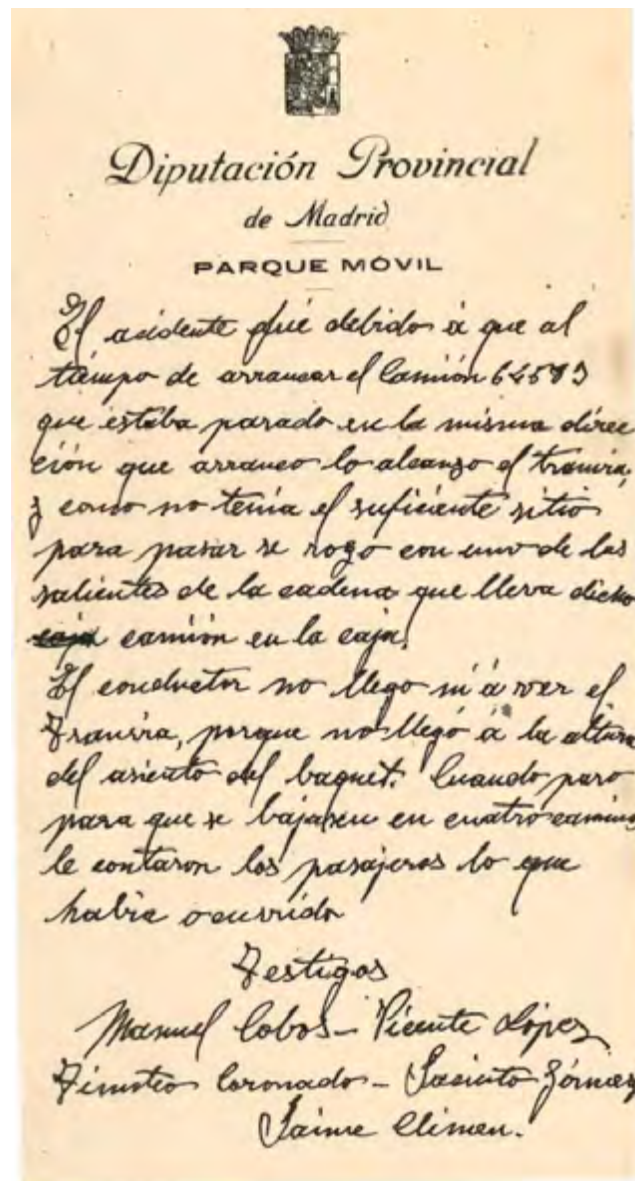 Diputación Provincial
de Madrid
PARQUE MÓVIL
El asidente fué debido á que al
tiempo de arrancar el Camión 64583
que estaba parado en la misma direc
ción que arranco lo alcanzo el tranvia,
y como no tenia el suficiente sitio
para pasar se rogo con uno de los
salientes de la cadena que lleva dicho
caja camión en la caja.
El conductor no llego ni á ver el
tranvia, porque no llegó á la altura
del asiento del baquet. Cuando paro
para que se bajasen en cuatro caminos
le contaron los pasajeros lo que
habia ocurrido
Testigos
Manuel Cobos - Vicente López
Timoteo Coronado - Jacinto Gómez
Jaime Climen.